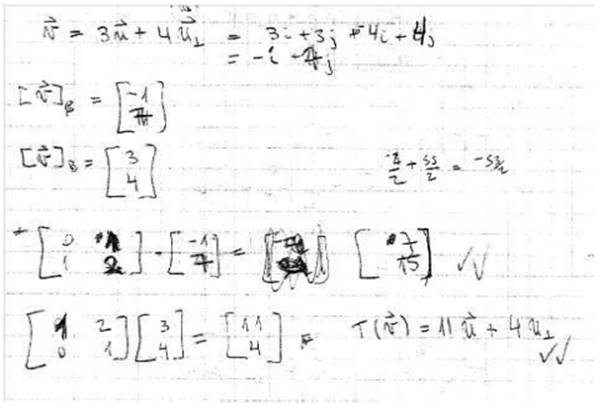 v⃗ = 3u⃗ + 4u⃗⊥ = 3i + 3j + -4i + 4j
= -i + 7j
[v⃗]_e = [-1 7]
[v⃗]_B = [3 4]
+ = -53/2
[0 1 1 2] · [-1 7] = [7 15] ✓✓
[1 2 0 1] [3 4] = [11 4] T(v⃗) = 11u⃗ + 4u⊥ ✓✓